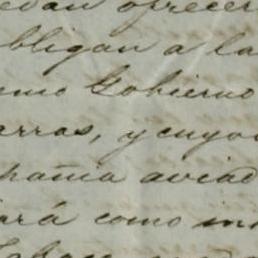 edan ofrecer
obligan a la
Gobierno
erras, y cuyo
pañia aviad
ará como in